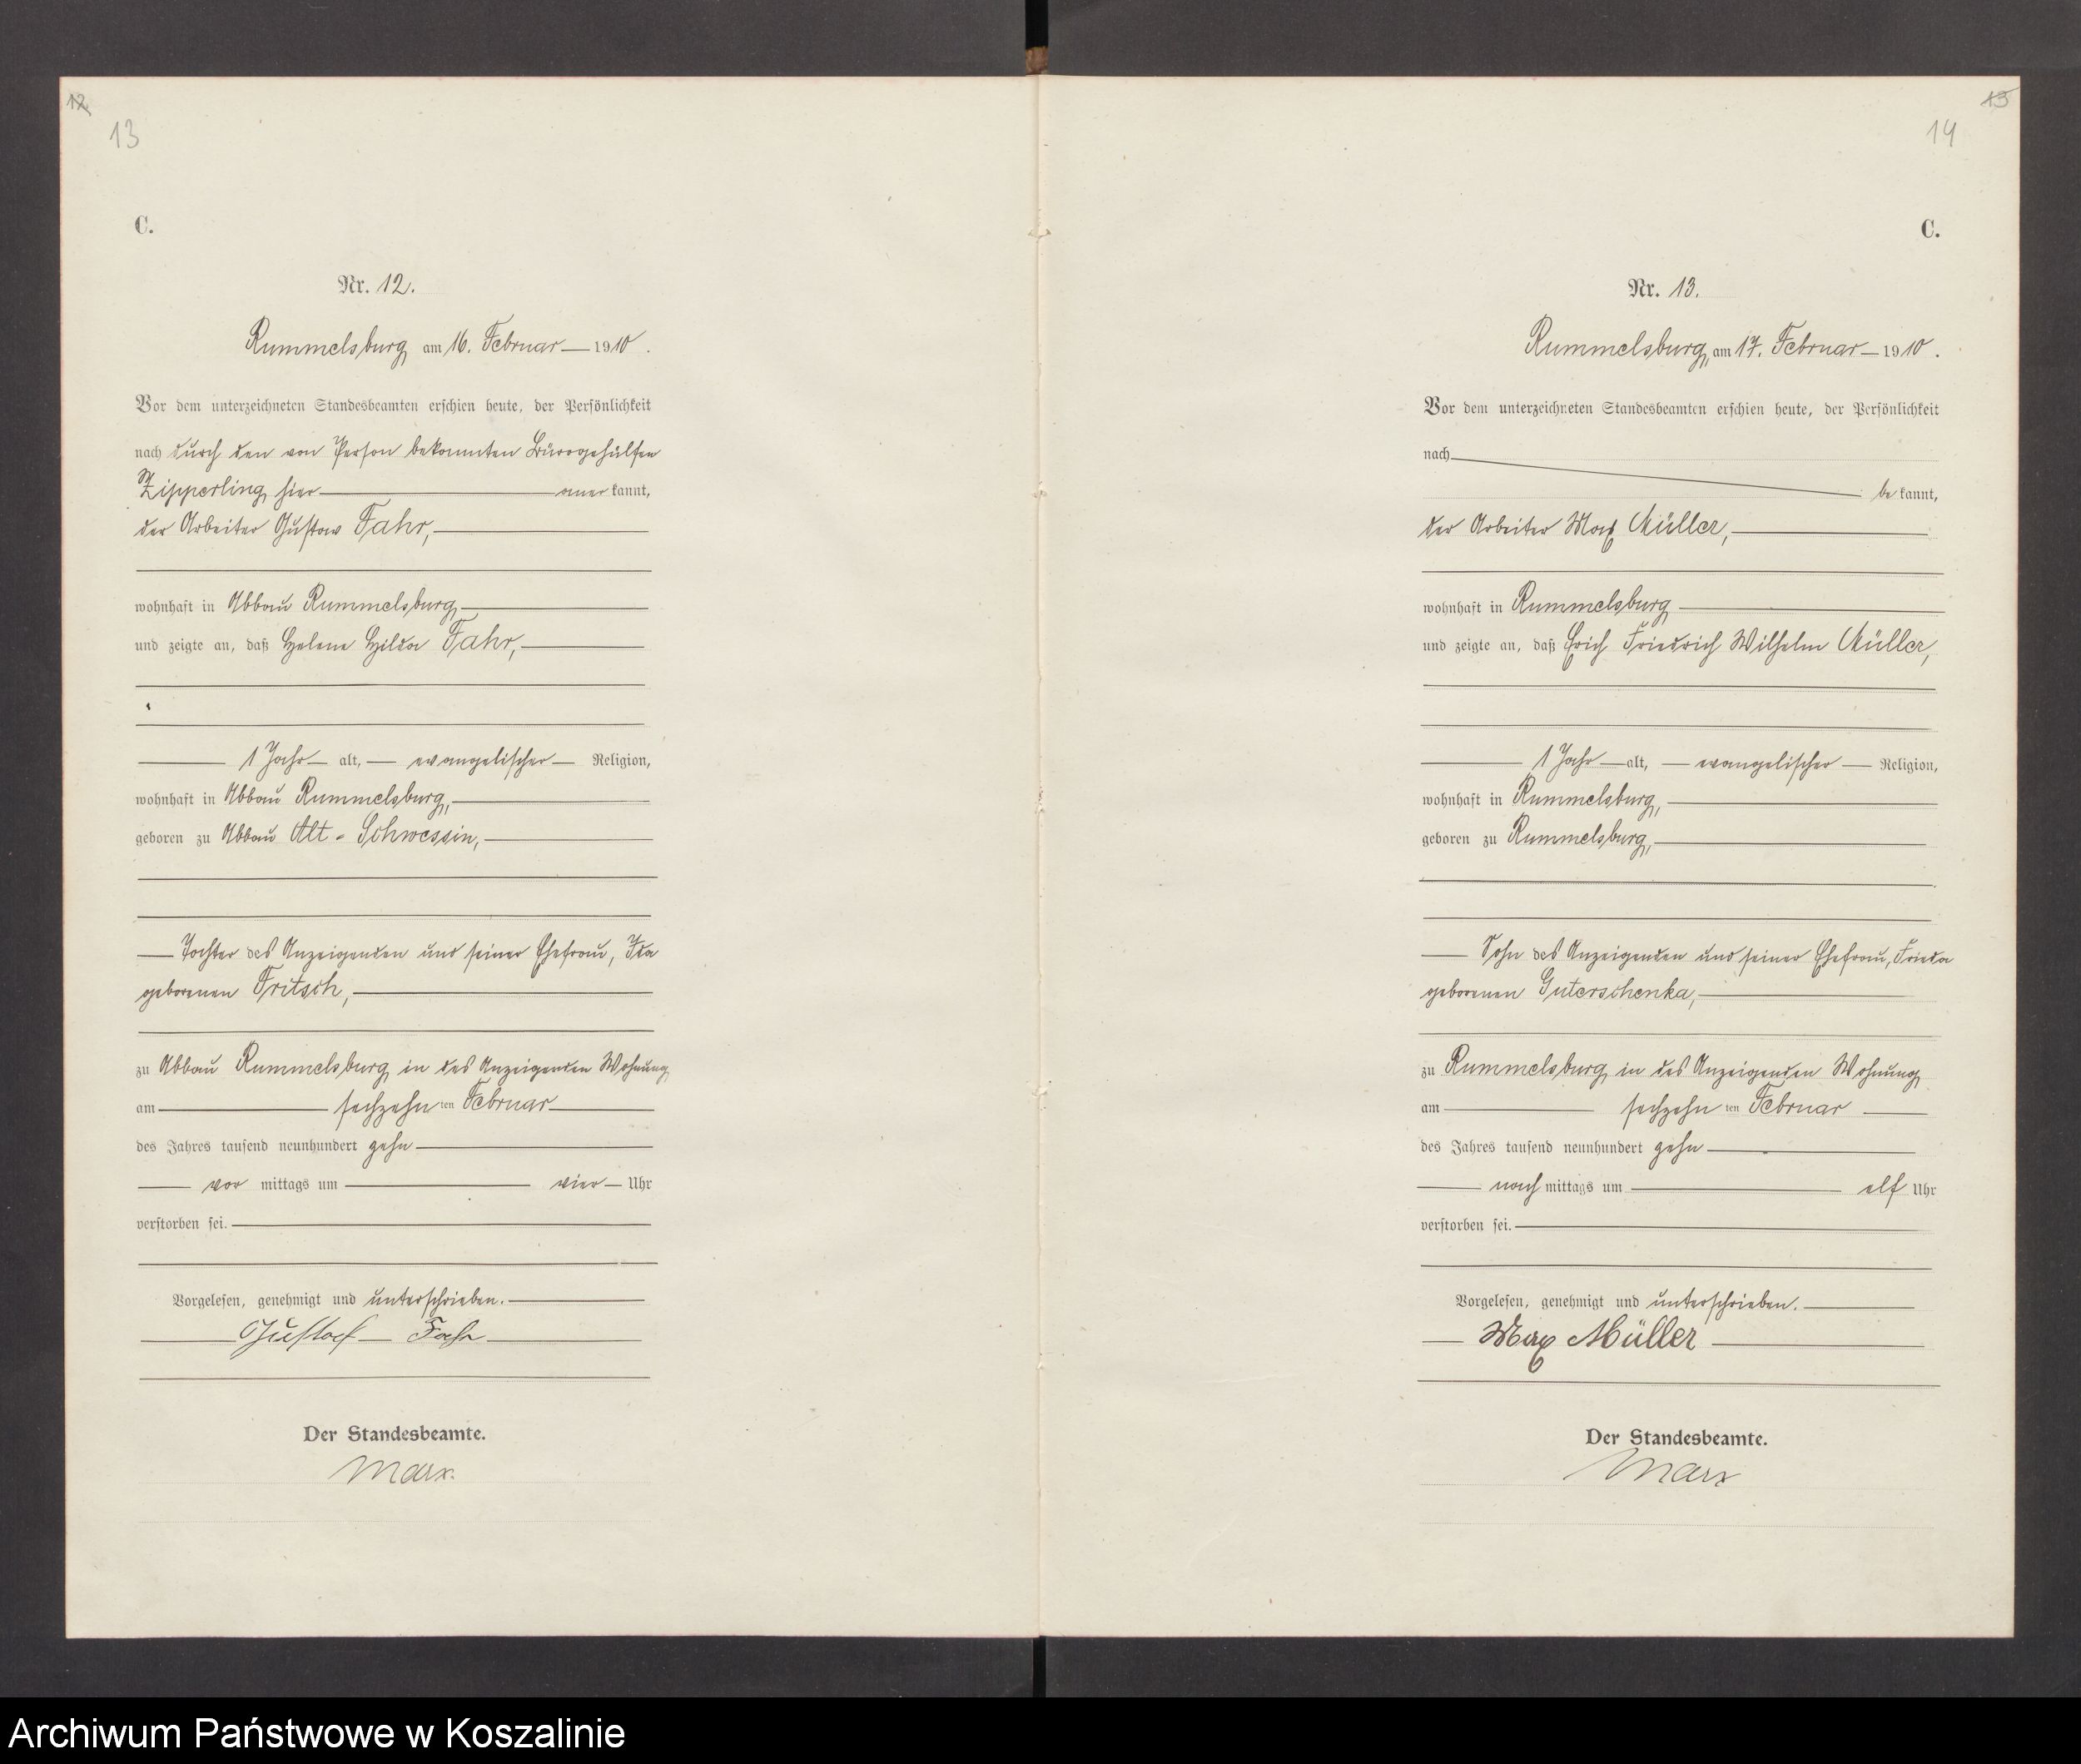 12
13
C.
Nr. 12.
Rummelsburg am 16. Februar 1910.
Vor dem unterzeichneten Standesbeamten erschien heute, der Persönlichkeit
nach durch den von Person bekannten Bürogehülfen
Zipperling hier anerkannt,
der Arbeiter Gustav Fahr,
wohnhaft in Abbau Rummelsburg,
und zeigte an, daß Helene Hilda Fahr,
1 Jahr alt, evangelischer Religion,
wohnhaft in Abbau Rummelsburg,
geboren zu Abbau Alt-Schwessin,
Tochter des Anzeigenden und seiner Ehefrau, Ida
geborenen Fritsch,
zu Abbau Rummelsburg in des Anzeigenden Wohnung
am sechzehnten Februar
des Jahres tausend neunhundert zehn
vor mittags um vier Uhr
verstorben sei.
Vorgelesen, genehmigt und unterschrieben.
Gustaf Fahr
Der Standesbeamte.
Marx.
13
14
C.
Nr. 13.
Rummelsburg, am 17. Februar 1910.
Vor dem unterzeichneten Standesbeamten erschien heute, der Persönlichkeit
nach
bekannt,
der Arbeiter Max Müller,
wohnhaft in Rummelsburg
und zeigte an, daß Erich Friedrich Wilhelm Müller,
1 Jahr alt, evangelischer Religion,
wohnhaft in Rummelsburg,
geboren zu Rummelsburg,
Sohn des Anzeigenden und seiner Ehefrau, Frieda
geborenen Guterschenka,
zu Rummelsburg in des Anzeigenden Wohnung
am sechzehnten Februar
des Jahres tausend neunhundert zehn
nach mittags um elf Uhr
verstorben sei.
Vorgelesen, genehmigt und unterschrieben.
Max Müller
Der Standesbeamte.
Marx
Archiwum Państwowe w Koszalinie